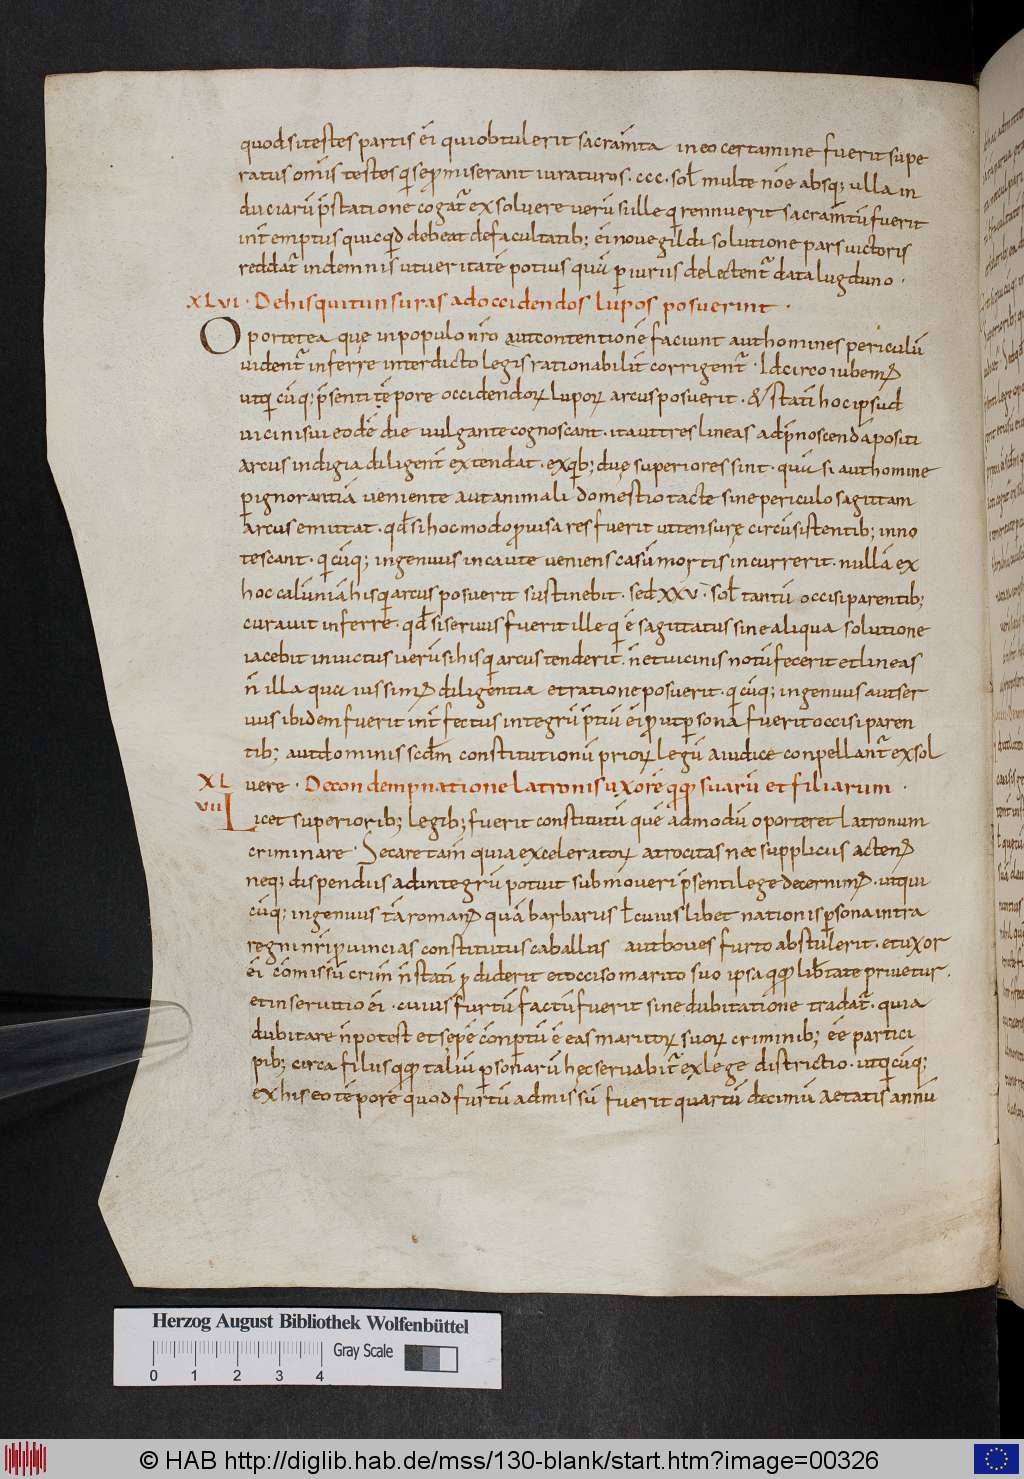 quod si testes partis ei qui obtulerit sacramta in eo certamine fuerit supe
ratus oms testes qi se pmiserant iuraturos · ccc · sol multe noe absq; ulla in
duciarū pstatione cogat exsoluere uerū si ille qi rennuerit sacramtū fuerit
intemptus quicqd debeat de facultatib; ei nouegildi solutione pars uictoris
reddat indemnis ut ueritatē potius quā piuriis delectent data lugduno ·
XLVI · De his qui tunsuras ad occidendos lupos posuerint ·
Oportet ea que in populo nro aut contentionē faciunt aut homines periculū
uident inferre interdicto legis rationabilit corrigent · Idcirco iubem
ut qi cūq; psenti tēpore occidendor lupor arcus posuerit · & statī hoc ipsud
uicinis sui eodē die uulgante cognoscant · ita ut tres lineas ad pnoscendā positi
arcus indigia diligent extendat · ex qb; due superiores sint · quū si aut homine
p ignorantiā ueniente aut animali domestio tacte sine periculo sagittam
arcus emittat · qd si hoc modo puisa res fuerit ut tensure circūsistentib; inno
tescant · qi cūq; ingenuus incaute ueniens casū mortis incurrerit · nullā ex
hoc calūniā his qi arcus posuerit sustinebit · sed XXV · sol tantū occisi parentib;
curauit inferre · qd si seruus fuerit ille qi ē sagittatus sine aliqua solutione
iacebit inuictus uerū si his qi arcus tenderit · n et uicinis notū fecerit et lineas
n illa qua iussim diligentia et ratione posuerit · qi cūq; ingenuus aut ser
uus ibidem fuerit intfectus integrū ptiū ei p ut psona fuerit occisi paren
tib; aut dominis scdm constitutionū prior legū a iudice conpellant exsol
XL
VII
uere · De condempnatione latronis uxore qq suarū et filiarum ·
Licet superiorib; legib; fuerit constitutū quē admodū oporteret latronum
criminare · Secare tam quia excelerator atrocitas nec suppliciis acten
neq; dispendiis ad integrū potuit submoueri psenti lege decernim · ut qui
cūq; ingenuus tā roman quā barbarus l cuiuslibet nationis psona intra
regni nri puincias constitutus caballus aut boues furto abstulerit · et uxor
ei comissū crim n stati pdiderit et occiso marito suo ipsa qq libtate priuetur ·
et in seruitio ei · cuius furtū factū fuerit sine dubitatione tradat · quia
dubitare n potest et sepe conptū ē eas maritor suor criminib; ēē partici
pib; circa filiis qq taliū psonarū hec seruabit ex lege districtio · ut qi cūq;
ex his eo tēpore quod furtū admissū fuerit quartū decimū aetatis annū
Herzog August Bibliothek Wolfenbüttel
Gray Scale
0 1 2 3 4
© HAB http://diglib.hab.de/mss/130-blank/start.htm?image=00326